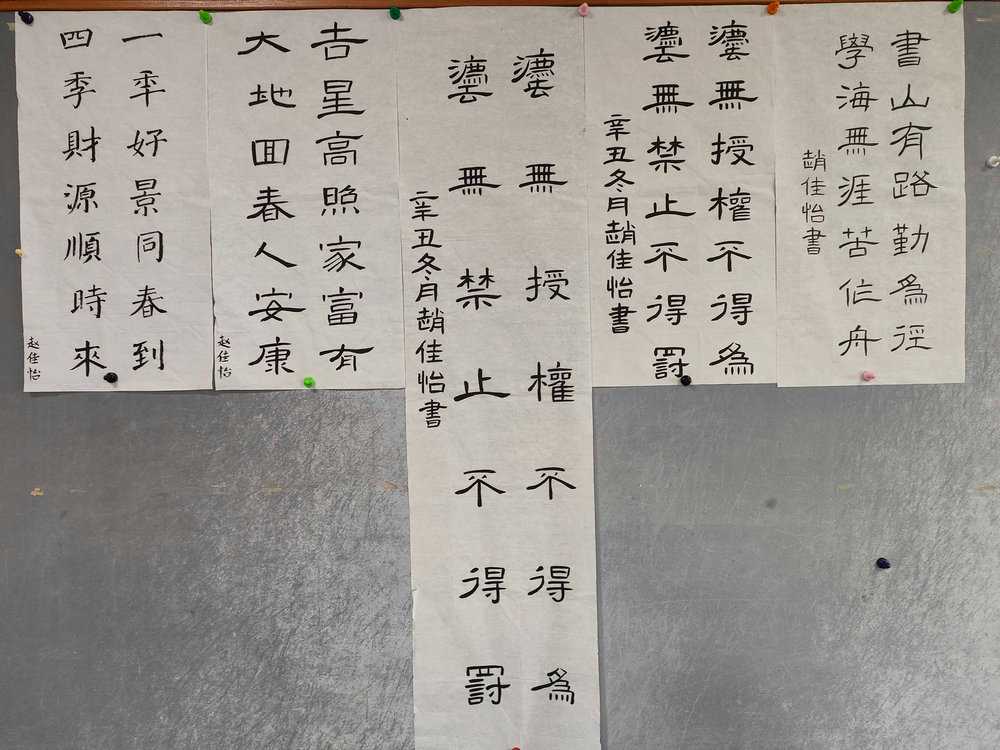 書山有路勤為徑
學海無涯苦作舟
趙佳怡書
灋無授權不得為
灋無禁止不得罰
辛丑冬月趙佳怡書
灋無授權不得為
灋無禁止不得罰
辛丑冬月趙佳怡書
吉星高照家富有
大地回春人安康
赵佳怡
一年好景同春到
四季財源順時來
赵佳怡